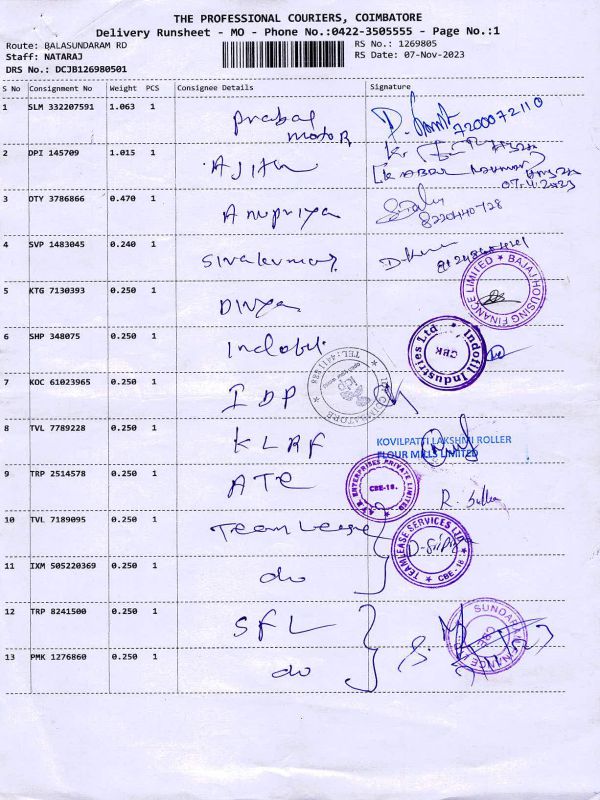 THE PROFESSIONAL COURIERS, COIMBATORE
Delivery Runsheet - MO - Phone No.:0422-3505555 - Page No.:1
Route: BALASUNDARAM RD
Staff: NATARAJ
DRS No.: DCJB126980501
RS No.: 1269805
RS Date: 07-Nov-2023
S No Consignment No Weight PCS Consignee Details Signature
1 SLM 332207591 1.063 1 Prabal motor
7200072110
2 DPI 145709 1.015 1 Ajith
07.11.2023
3 OTY 3786866 0.470 1 Anupriya
4 SVP 1483045 0.240 1 Sivakumar
5 KTG 7130393 0.250 1 Divya
BAJAJ HOUSING FINANCE LIMITED
6 SHP 348075 0.250 1 Indofil
Indofil Industries Ltd CBK
7 KOC 61023965 0.250 1 IDP
8 TVL 7789228 0.250 1 KLRF
KOVILPATTI LAKSHMI ROLLER
FLOUR MILLS LIMITED
9 TRP 2514578 0.250 1 ATE
ENTERPRISES PRIVATE LIMITED CBE-18.
10 TVL 7189095 0.250 1 Team Lease
TEAMLEASE SERVICES LTD CBE-18
11 IXM 505220369 0.250 1 do
12 TRP 8241500 0.250 1 SFL
SUNDARAM FINANCE
13 PMK 1276860 0.250 1 do